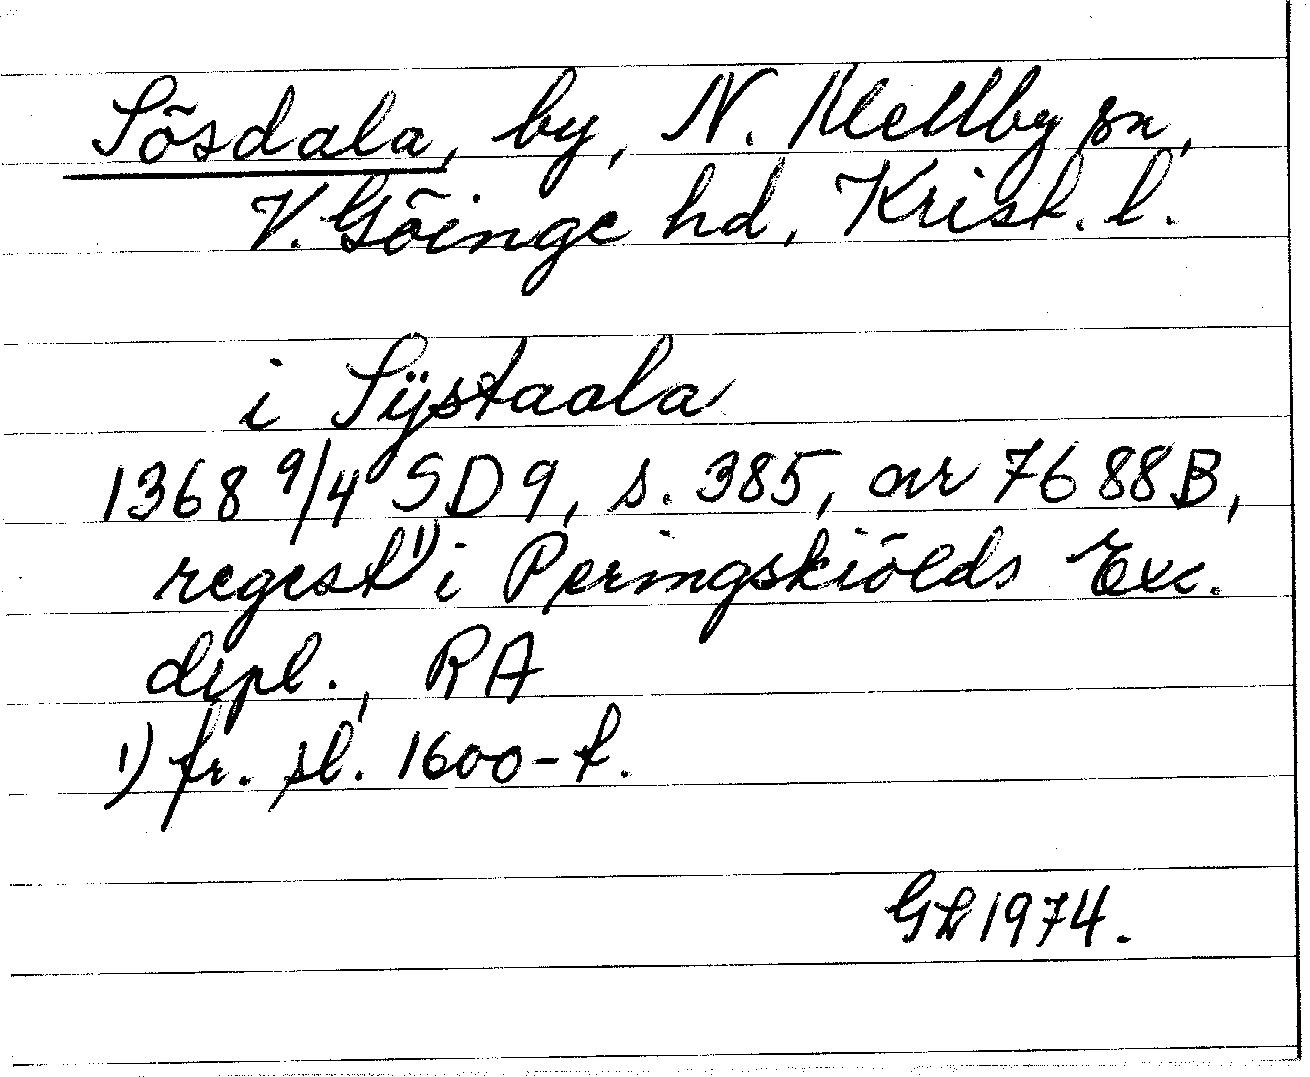 Sösdala, by, N. Mellby sn,
V. Göinge hd, Krist. l.
i Sÿstaala
1368 9/4 SD 9, s. 385, nr 7688B,
regest 1) i Peringskiölds Exc.
dipl., RA
1) fr. sl. 1600-t.
1974.